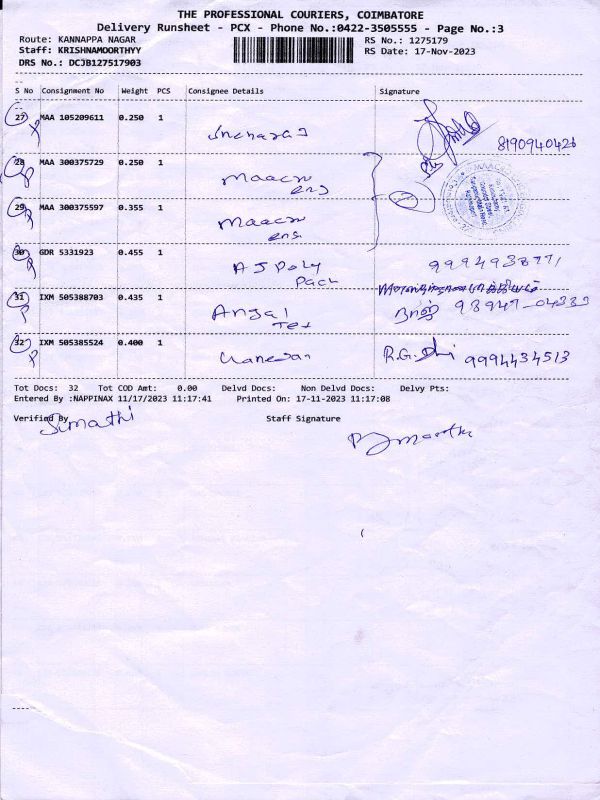 THE PROFESSIONAL COURIERS, COIMBATORE
Delivery Runsheet - PCX - Phone No.:0422-3505555 - Page No.:3
Route: KANNAPPA NAGAR
RS No.: 1275179
Staff: KRISHNAMOORTHYY
RS Date: 17-Nov-2023
DRS No.: DCJB127517903
S No Consignment No Weight PCS Consignee Details Signature
27 MAA 105209611 0.250 1
8190940426
28 MAA 300375729 0.250 1 maacn
eng
29 MAA 300375597 0.355 1 maacn
eng.
30 GDR 5331923 0.455 1 A J Poly
Pack
31 IXM 505388703 0.435 1 Anjal
Tex
98947-04333
32 IXM 505385524 0.400 1 R.G. 9994434513
Tot Docs: 32 Tot COD Amt: 0.00 Delvd Docs: Non Delvd Docs: Delvy Pts:
Entered By :NAPPINAX 11/17/2023 11:17:41 Printed On: 17-11-2023 11:17:08
Verified By Staff Signature
Sumathi